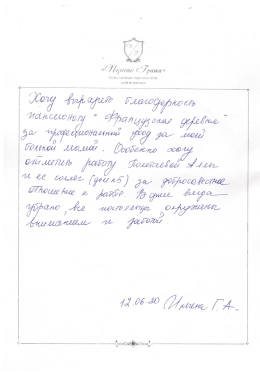 «Первая Грань»
Хочу выразить благодарность
пансионату "Французская деревня"
за профессиональный уход за моей
больной мамой. Особенно хочу
отметить работу Алёны
и её коллег (дом 5) за добросовестное
отношение к работе. В доме всегда
убрано, все постояльцы окружены
вниманием и заботой
12.06.20 Ильина Г. А.